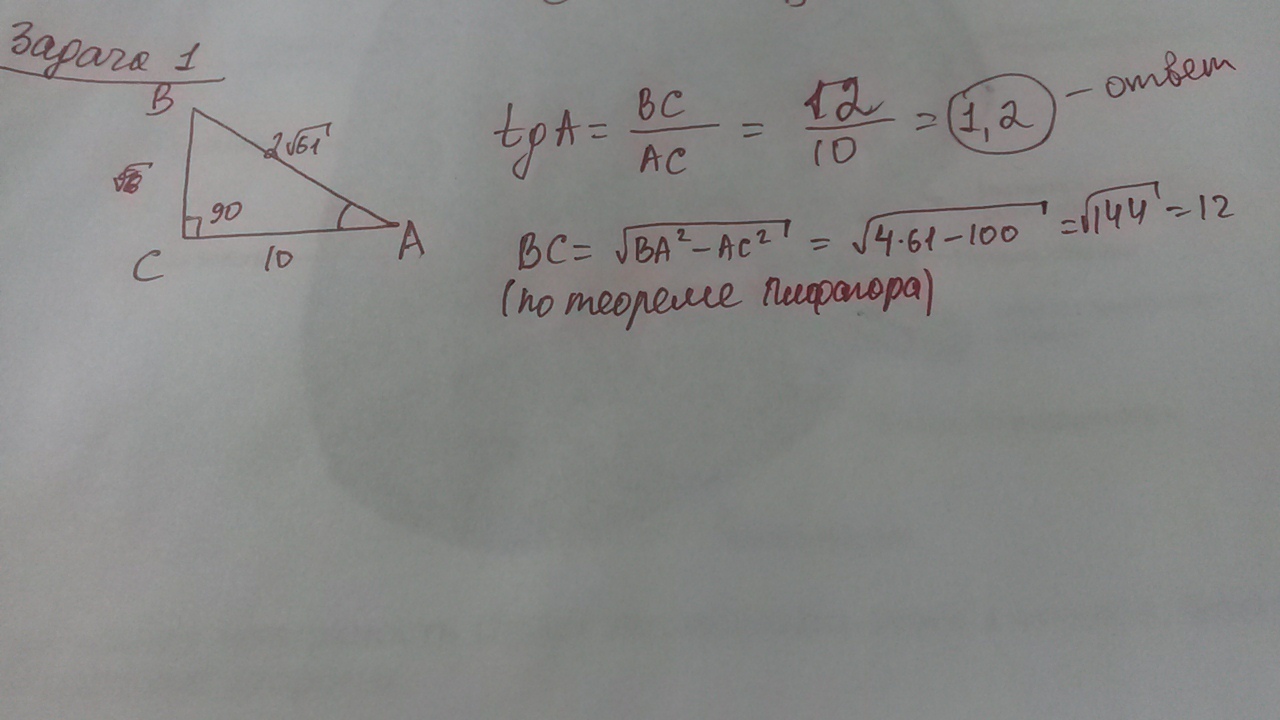 Задача 1
B
2√61
90
C
10
A
tgA = BC/AC = 12/10 = 1,2 - ответ
BC = √BA²-AC² = √4·61-100 = √144 = 12
(по теореме Пифагора)